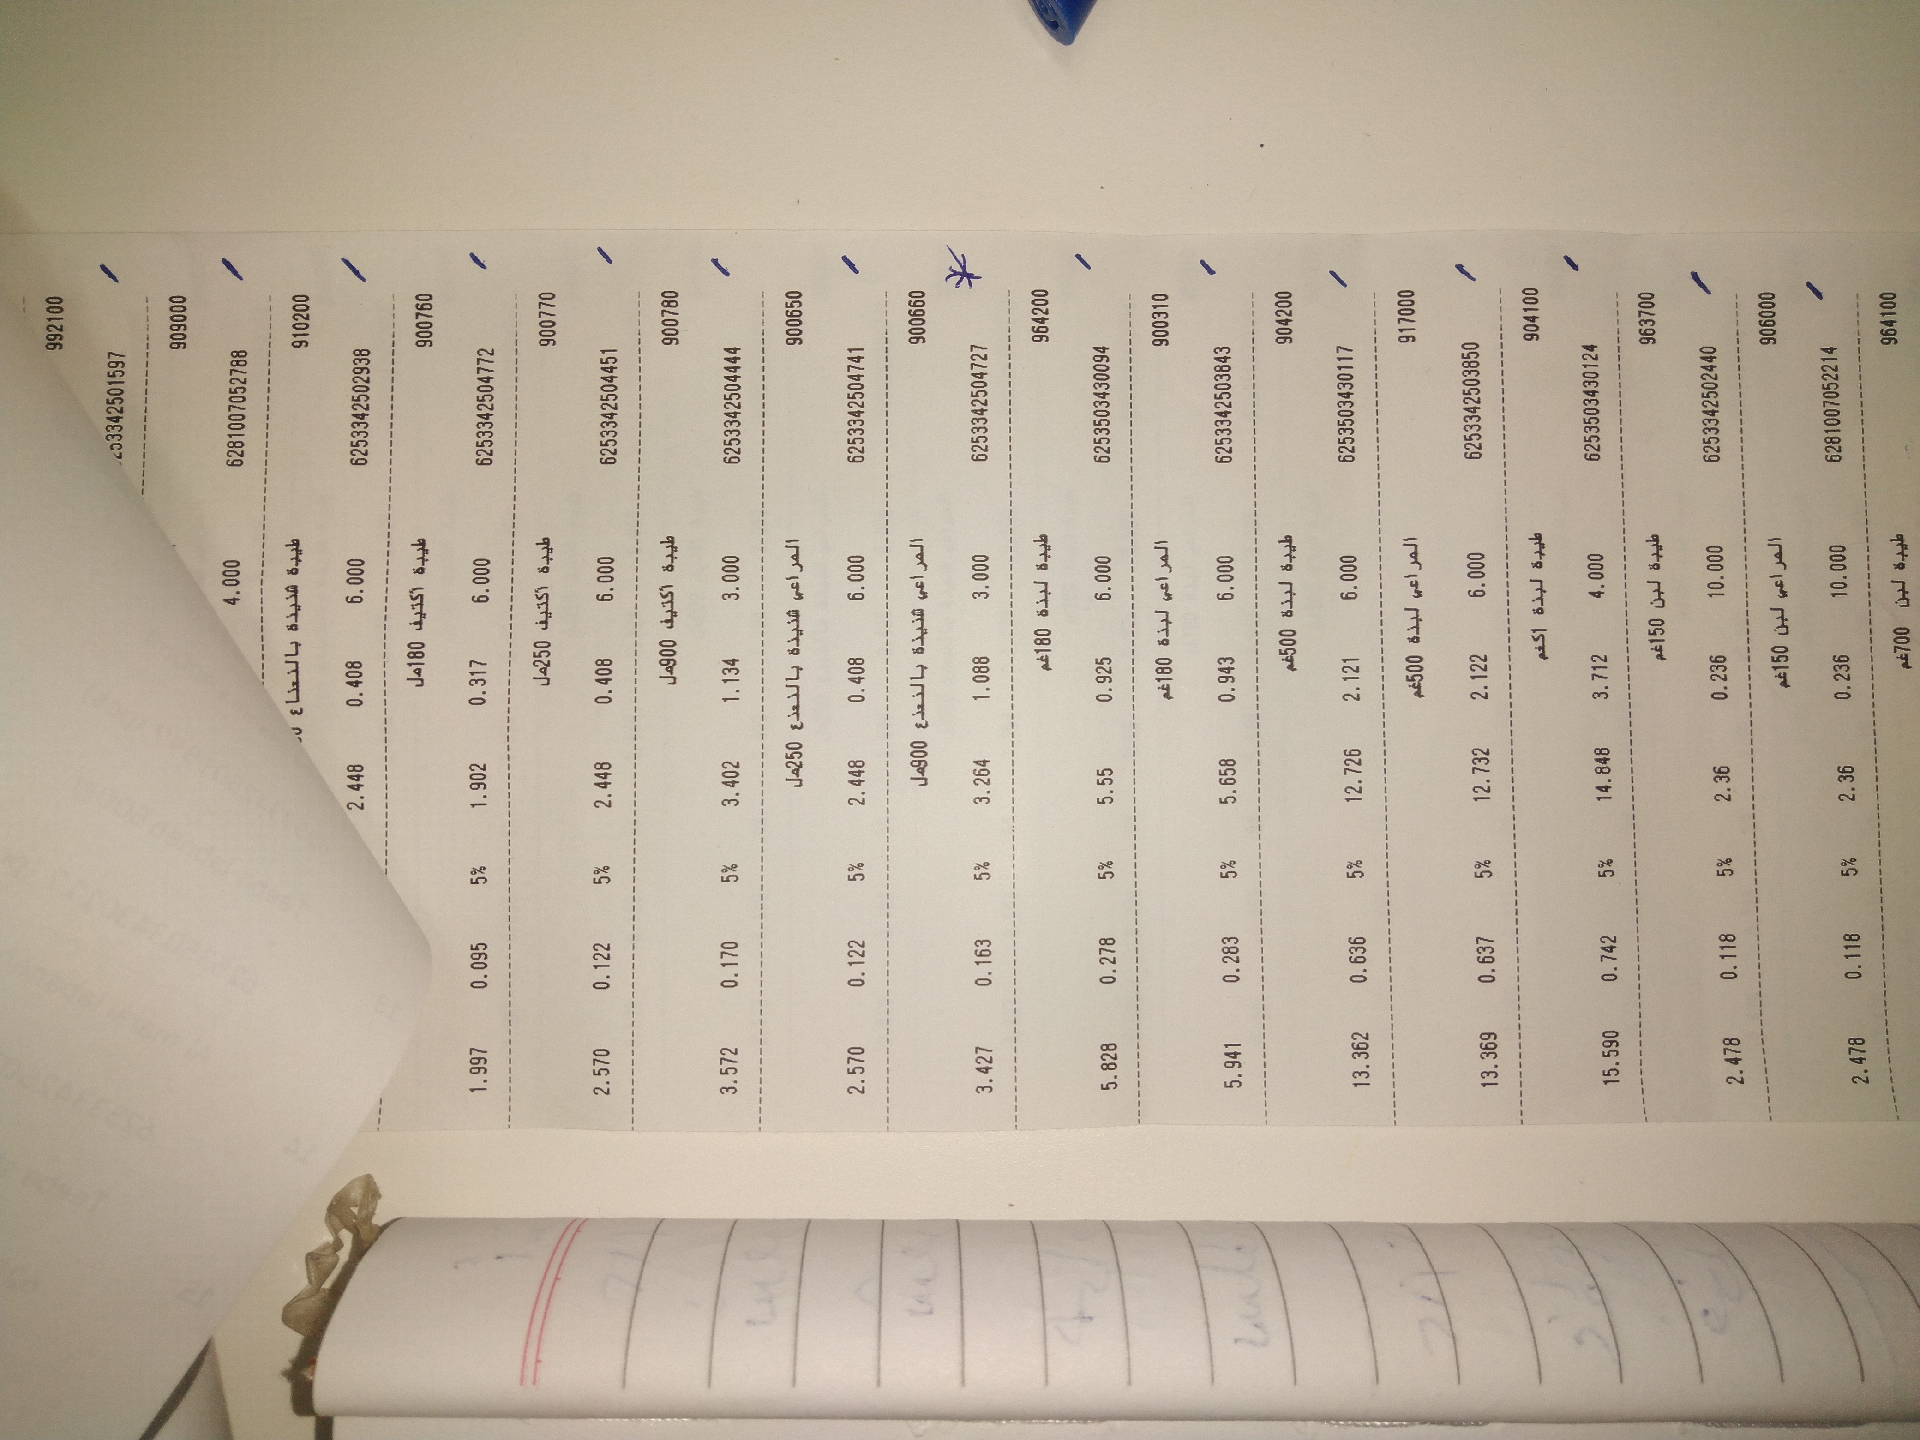 992100
25334250159​7
909000
6281007052788
4.000
910200
طيبة شنينة بالنعناع
6253342502938 6.000 0.408 2.448
900760 طيبة اكتيف 180مل
6253342504772 6.000 0.317 1.902 5% 0.095 1.997
900770 طيبة اكتيف 250مل
6253342504451 6.000 0.408 2.448 5% 0.122 2.570
900780 طيبة اكتيف 900مل
6253342504444 3.000 1.134 3.402 5% 0.170 3.572
900650 المراعي شنينة بالنعنع 250مل
6253342504741 6.000 0.408 2.448 5% 0.122 2.570
900660 المراعي شنينة بالنعنع 900مل
6253342504727 3.000 1.088 3.264 5% 0.163 3.427
964200 طيبة لبنة 180غم
6253503430094 6.000 0.925 5.55 5% 0.278 5.828
900310 المراعي لبنة 180غم
6253342503843 6.000 0.943 5.658 5% 0.283 5.941
904200 طيبة لبنة 500غم
6253503430117 6.000 2.121 12.726 5% 0.636 13.362
917000 المراعي لبنة 500غم
6253342503850 6.000 2.122 12.732 5% 0.637 13.369
904100 طيبة لبنة 1كغم
6253503430124 4.000 3.712 14.848 5% 0.742 15.590
963700 طيبة لبن 150غم
6253342502440 10.000 0.236 2.36 5% 0.118 2.478
906000 المراعي لبن 150غم
6281007052214 10.000 0.236 2.36 5% 0.118 2.478
964100 طيبة لبن 700غم